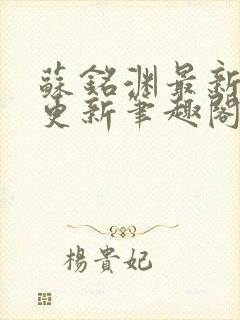 蘇銘淵最新
更新筆趣閣
楊貴妃